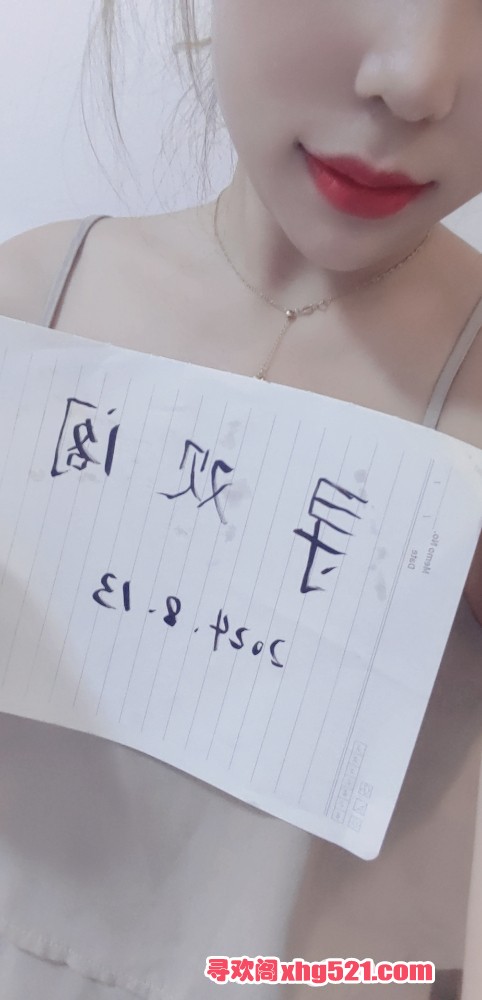 寻欢阁
2024.8.13
Memo No.
Date
寻欢阁xhg521.com